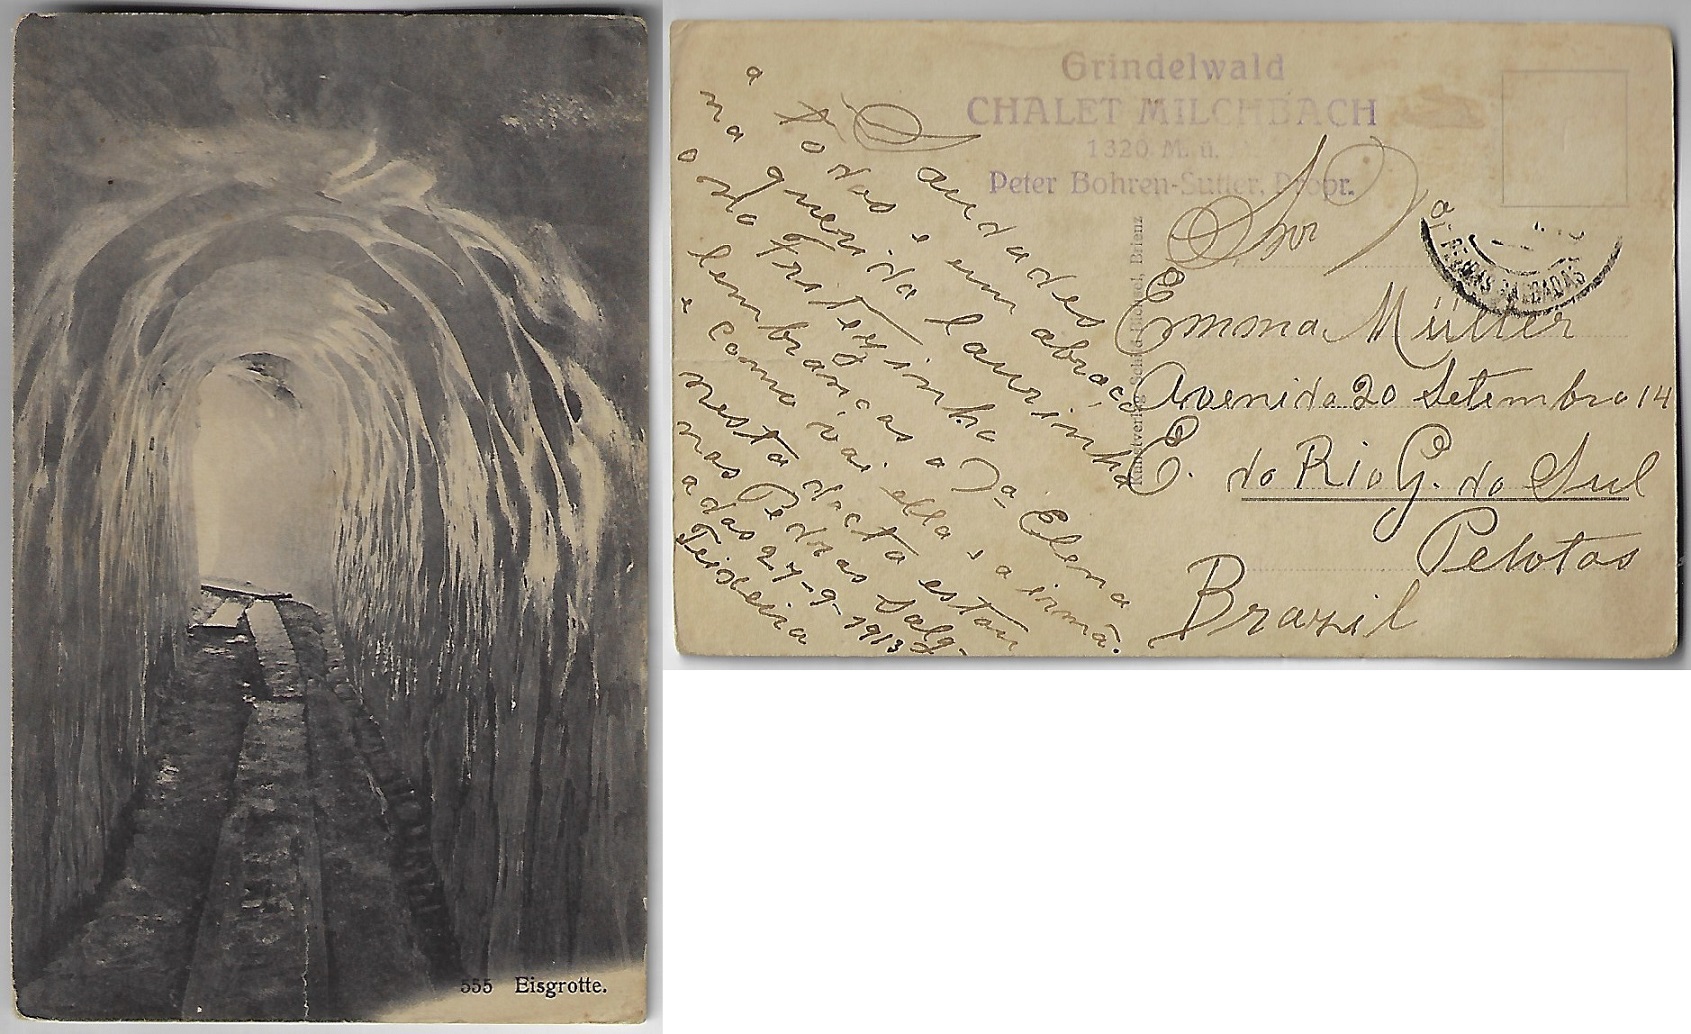 555 Eisgrotte.
Grindelwald
CHALET MILCHBACH
1320 M. ü.
Peter Bohren-Sutter, Propr.
Kunstverlag Brienz
PEDRAS SALGADAS
Snr
Emma Müller
Avenida 20 Setembro 14
E. do Rio G. do Sul
Pelotas
Brazil
Saudades
a todos e um abraço
na querida Laurinha
o da Fritezinha
lembranças a Da Elena
e como vai ella e a irmã.
nesta data estou
nas Pedras Salg-
adas 27-9-1913
Teixeira